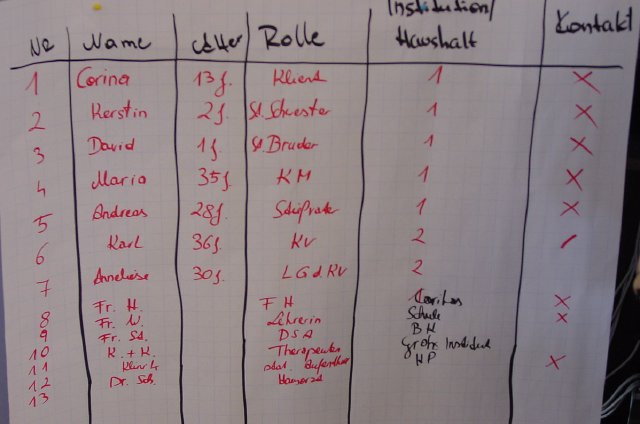 Institution/
Nr Name Alter Rolle Haushalt Kontakt
1 Corina 13 J. Klient 1 X
2 Kerstin 2 J. St. Schwester 1 X
3 David 1 J. St. Bruder 1 X
4 Maria 35 J. KM 1 X
5 Andreas 28 J. Stiefvater 1 X
6 Karl 36 J. KV 2 /
7 Anneliese 30 J. LG d KV 2
8 Fr. H. FH Caritas X
9 Fr. W. Lehrerin Schule X
10 Fr. Sch. DSA BH
11 K. + K. Therapeuten Institut
12 Klinik stat. Aufenthalt HP X
13 Dr. Sch. Hausarzt